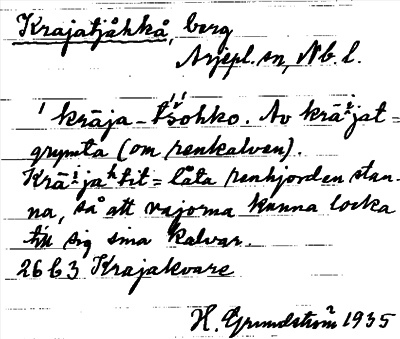 Krajatjåhkå, berg
Arjepl. sn, Nb. l.
krāja-tšohko. Av krā-jat=
grymta (om renkalven).
Krā-jahtit = låta renhjorden stan-
na, så att vajorna kunna locka
till sig sina kalvar.
26 b 3 Krajakvare
H. Grundström 1935